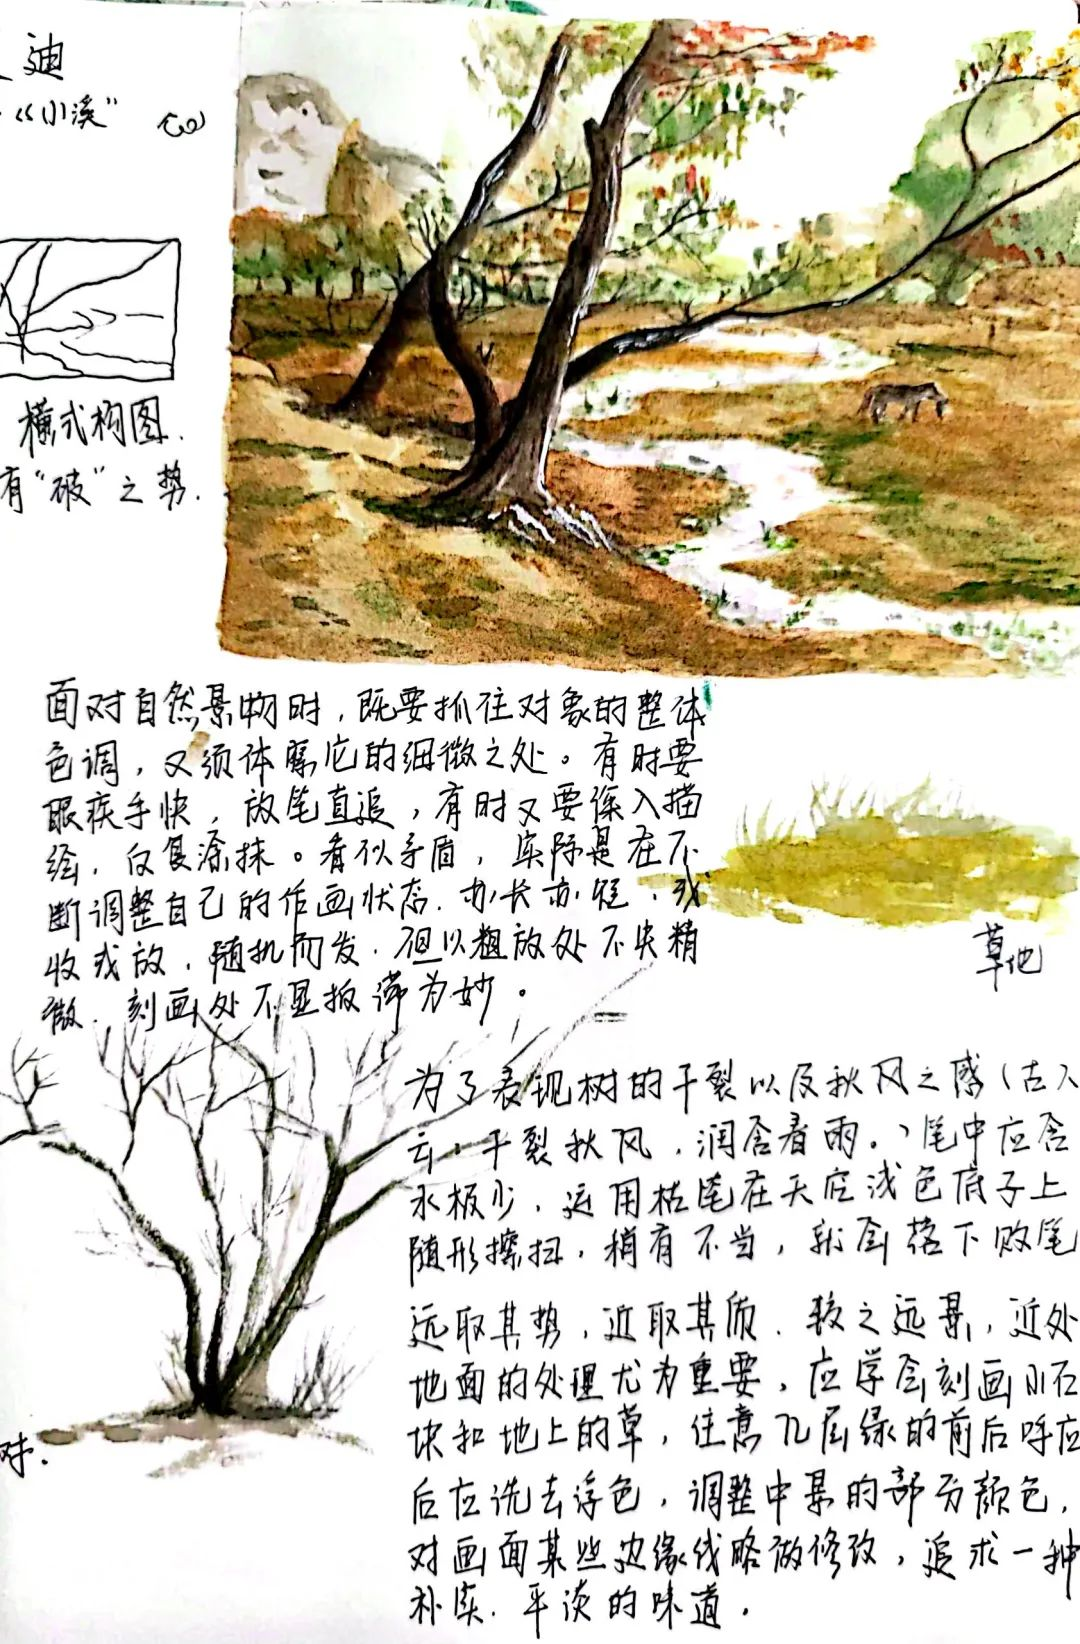 迪
《小溪》
横式构图.
有“破”之势.
面对自然景物时，既要抓住对象的整体
色调，又须体察它的细微之处。有时要
眼疾手快，放笔直追，有时又要深入描
绘，反复涂抹。看似矛盾，实际是在不
断调整自己的作画状态.亦长亦短、或
收或放、随机而发.但以粗放处不失精
微.刻画处不显板滞为妙。
草地
为了表现树的干裂以及秋风之感（古人
云：干裂秋风，润含春雨。）笔中应含
水极少，运用枯笔在天空浅色底子上
随形擦扫，稍有不当，就会落下败笔
远取其势，近取其质.较之远景，近处
地面的处理尤为重要，应学会刻画小石
块和地上的草，注意几层绿的前后呼应
后应洗去浮色，调整中景的部分颜色，
对画面某些边缘线略做修改，追求一种
朴实.平淡的味道。
对.